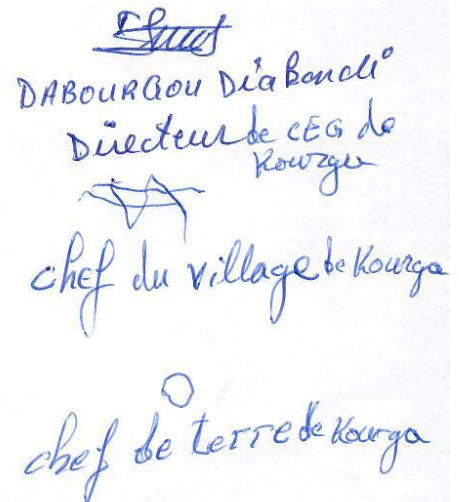 DABOURGOU Diabandi
Directeur de CEG de
Kourga
chef du village de Kourga
chef de terre de Kourga